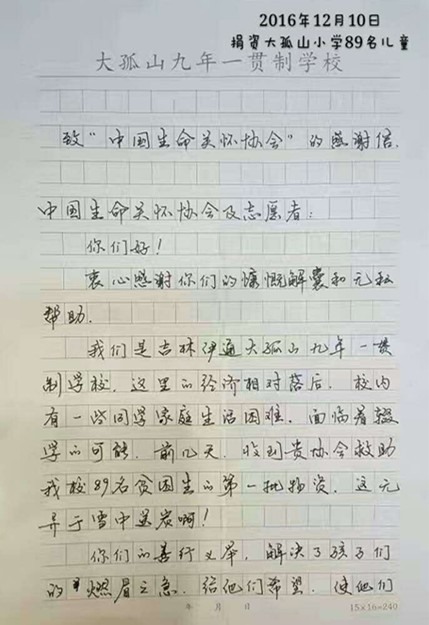 2016年12月10日
捐资大孤山小学89名儿童
大孤山九年一贯制学校
致“中国生命关怀协会”的感谢信.
中国生命关怀协会及志愿者:
你们好!
衷心感谢你们的慷慨解囊和无私
帮助.
我们是吉林伊通大孤山九年一贯
制学校. 这里的经济相对落后. 校内
有一些同学家庭生活困难. 面临着辍
学的可能. 前几天. 收到贵协会救助
我校89名贫困生的第一批物资. 这无
异于雪中送炭啊!
你们的善行义举. 解决了孩子们
的燃眉之急. 给他们希望. 使他们
年 月 日
15×16=240